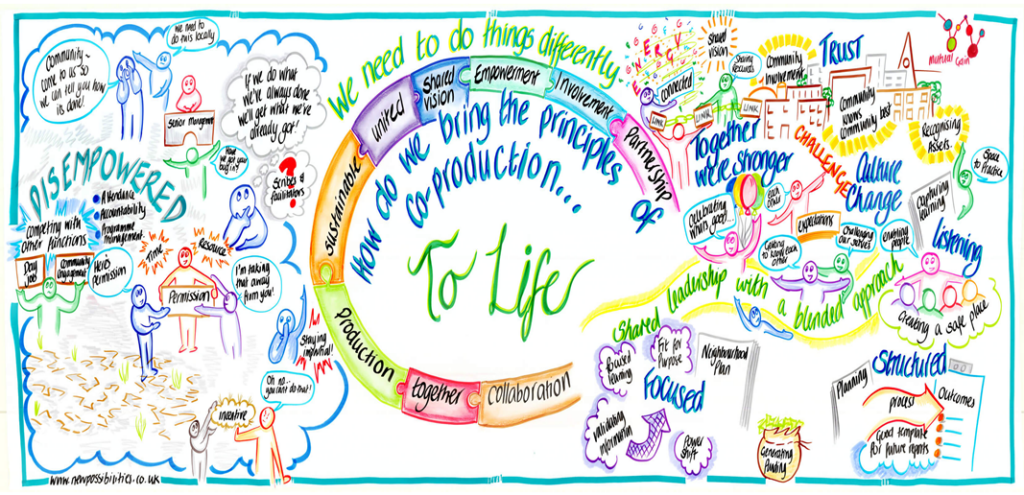 Community ~
come to us so
we can tell you how
its done!
we need to
do this locally
Senior Management
DISEMPOWERED
competing with
other functions
• Attendance
• Accountability
• Programme
management.
Day
Job
Community
Engagement
Here's
Permission
Time
Resource
Permission
I'm taking
that away
from you!
If we do what
we've always done
we'll get what we've
already got!
?
Scribes &
facilitators
Staying
impartial!
Oh no...
you cant do that!
incentive
www.newpossibilities.co.uk
We need to do things differently
sustainable
united
Shared
vision
Empowerment
Involvement
Partnership
How do we bring the principles of
co-production...
To Life
production
together
collaboration
ENERGY
Shared
vision
connected
LINK
LINK
LINK
Sharing
Resources
Together
we're stronger
Community
Involvement
TRUST
Community
knows
community best
Mutual Gain
Recognising
Assets.
CHALLENGE
Culture
Change
Space to
Practice
Capturing
learning
Celebrating
whats good...
each
other
Expectations
Getting
to know each
other
Challenging
ourselves
people
Listening
Creating a safe place
Shared leadership with a blended approach
Focused
learning
Fit for
Purpose
Neighbourhood
Plan
Focused
Validating
information
Power
shift
Generating
Funding
Structured
Planning
process
Outcomes
Good template
for future reports